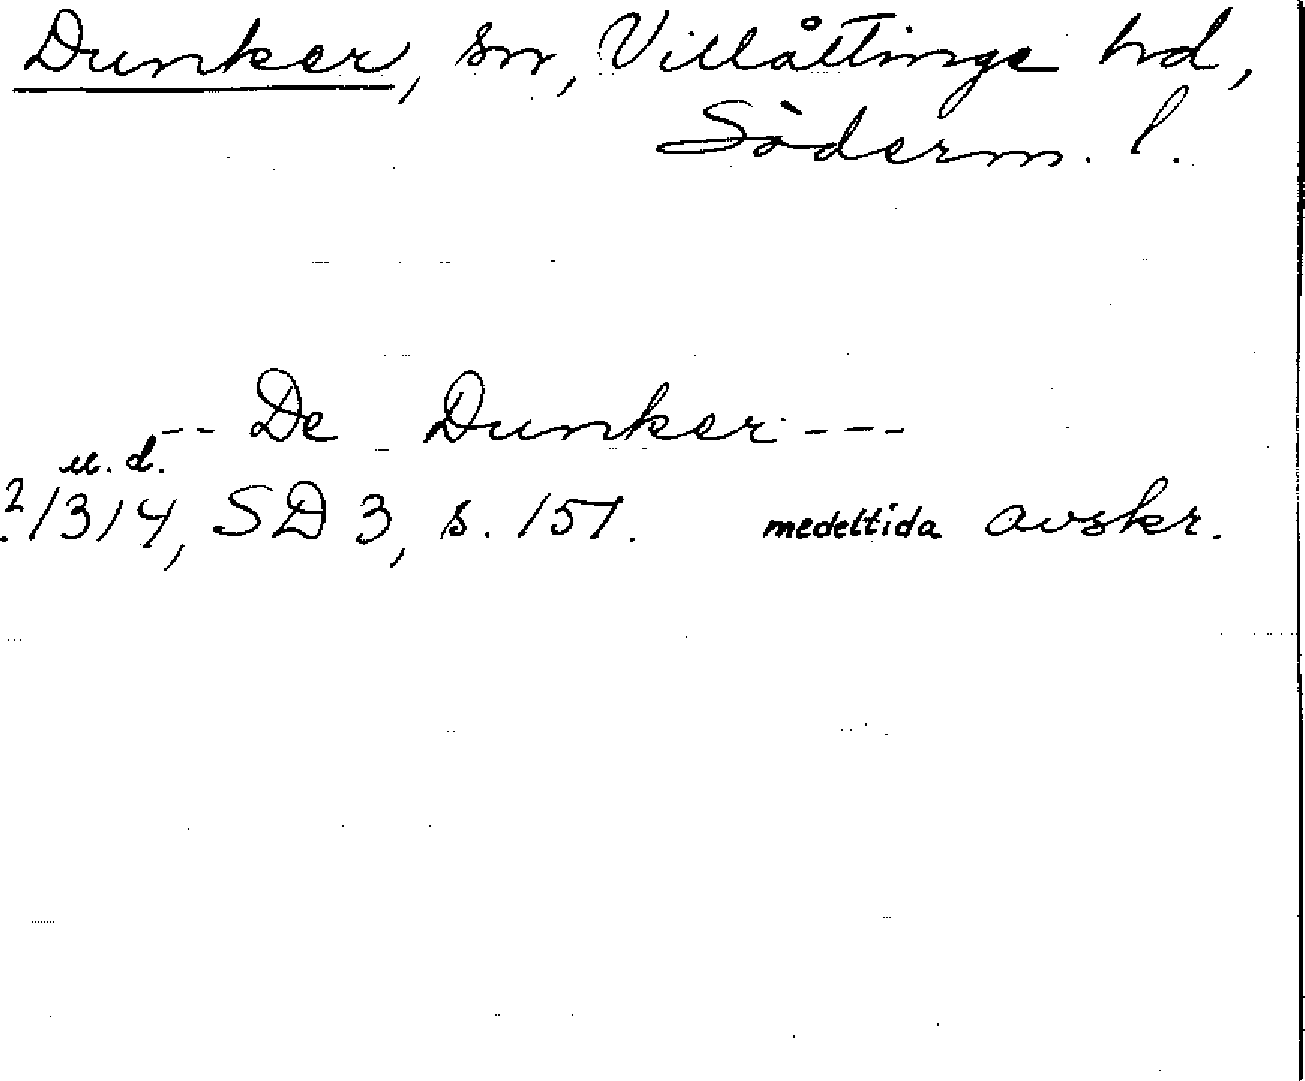 Dunker, sn, Villåttinge hd,
Söderm. l.
-- De Dunker ---
u. d.
? 1314, SD 3, s. 151. medeltida avskr.